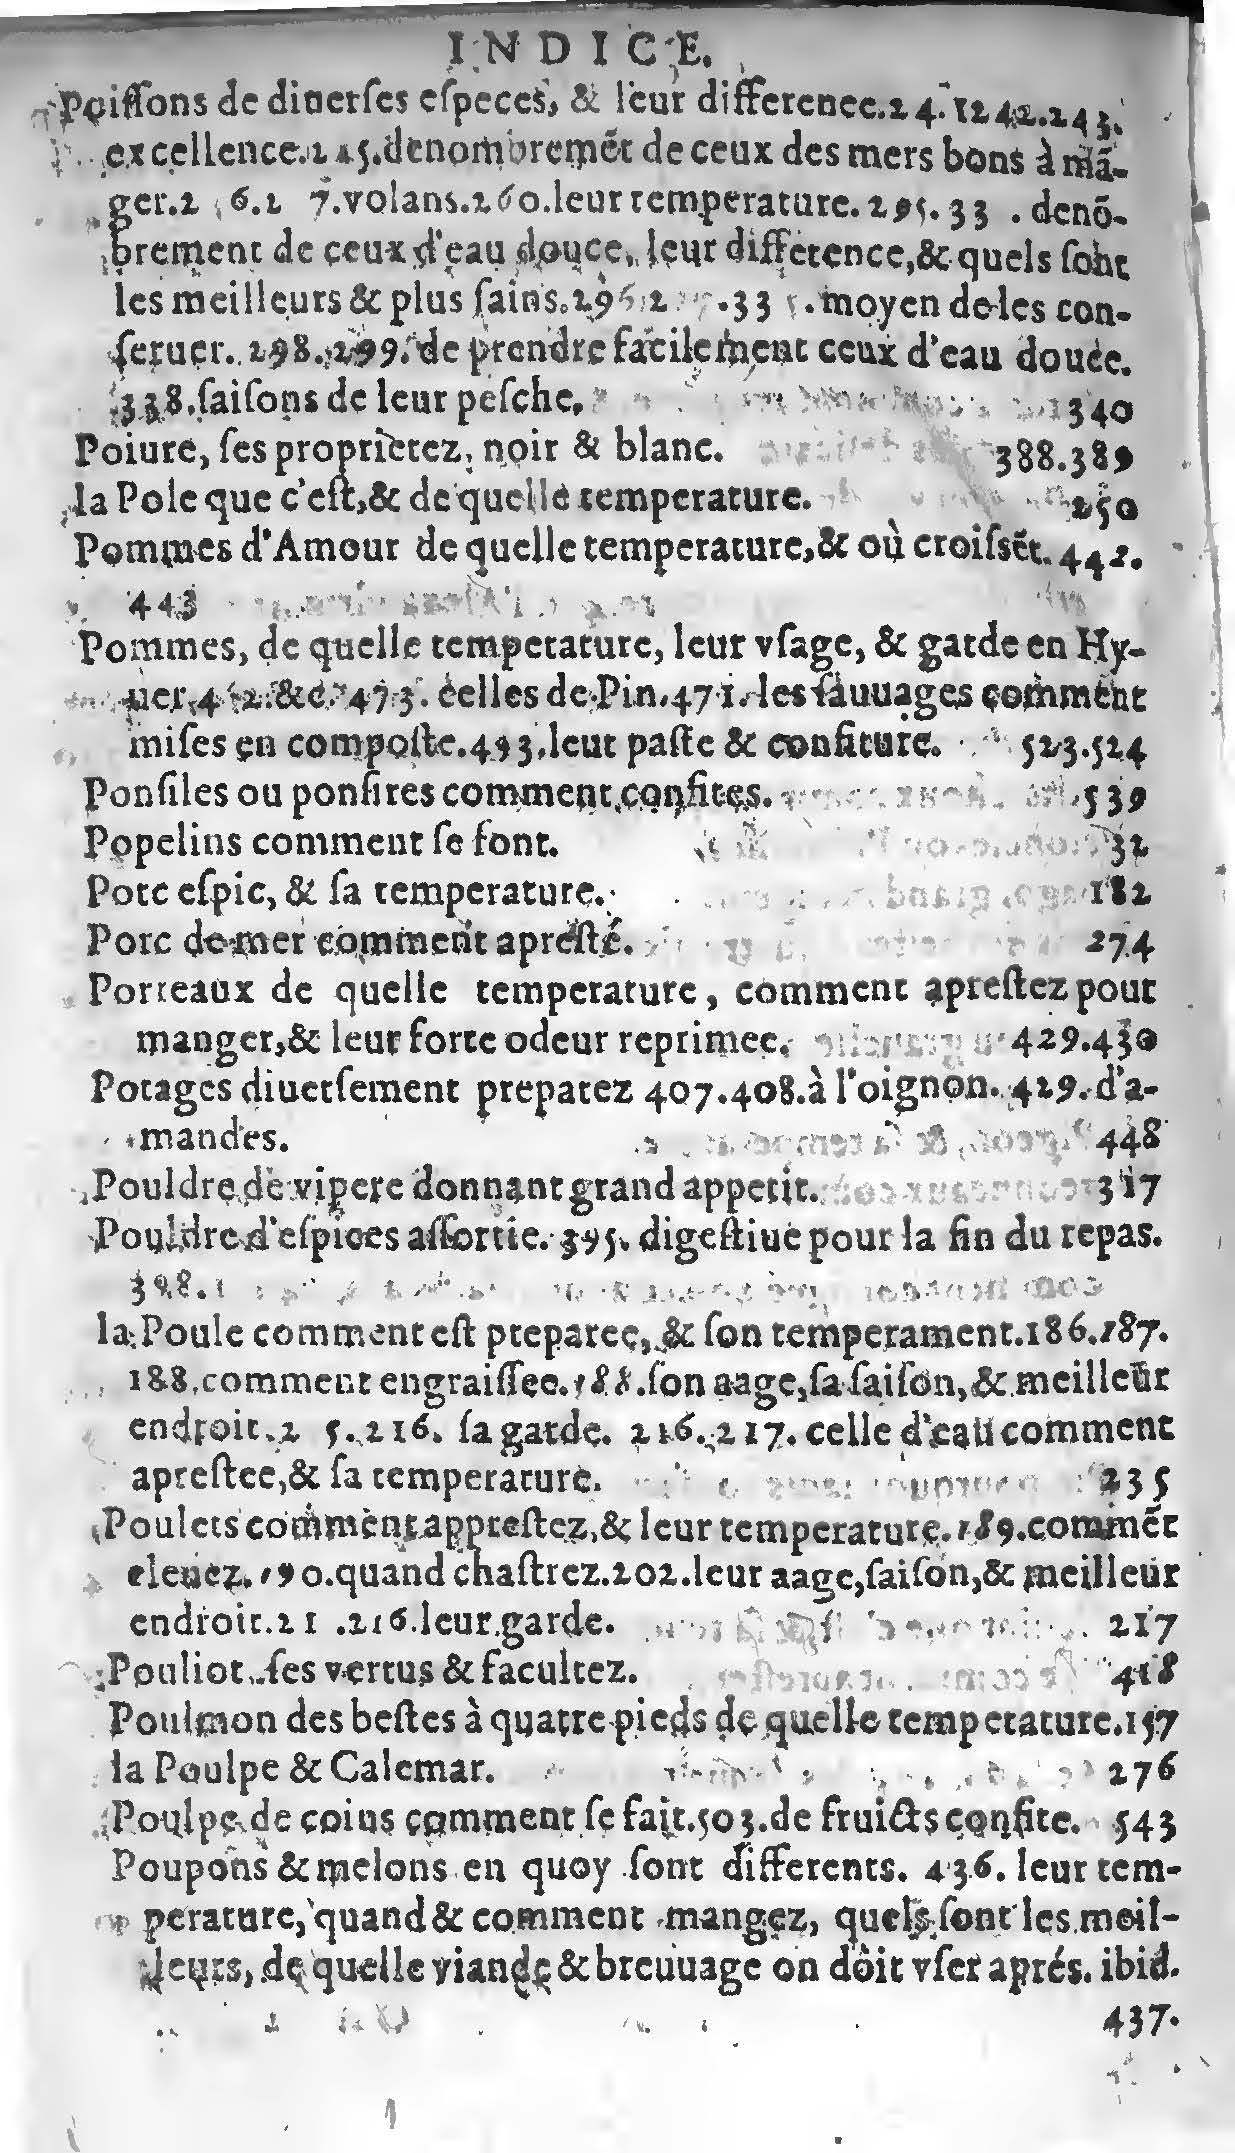 INDICE.
Poiſſons de diuerſes eſpeces, & leur difference. 242.243.
excellence.245.denombremēt de ceux des mers bons à mā-
ger. volans.260.leur temperature.295. denō-
brement de ceux d'eau douce, leur difference,& quels ſont
les meilleurs & plus ſains.296. moyen de les con-
ſeruer. 298.299. de prendre facilement ceux d'eau douce.
338.ſaiſons de leur peſche. 340
Poiure, ſes proprietez, noir & blanc. 388.389
la Pole que c'eſt,& de quelle temperature. 250
Pommes d'Amour de quelle temperature,& où croiſsēt. 442.
443
Pommes, de quelle temperature, leur vſage, & garde en Hy-
uer. &c. 473. celles de Pin.471. les ſauuages comment
miſes en compoſte.493.leur paſte & confiture. 523.524
Ponſiles ou ponſires comment confites. 539
Popelins comment ſe font. 32
Porc eſpic, & ſa temperature. 182
Porc de mer comment apreſté. 274
Porreaux de quelle temperature, comment apreſtez pour
manger,& leur forte odeur reprimee. 429.430
Potages diuerſement preparez 407.408.à l'oignon. 429. d'a-
mandes. 448
Pouldre de vipere donnant grand appetit. 317
Pouldre d'eſpices aſſortie. 395. digeſtiue pour la fin du repas.
398.
la Poule comment eſt preparee, & ſon temperament.186.187.
188.comment engraiſſee.188.ſon aage,ſa ſaiſon,& meilleur
endroit. 216. ſa garde. 216.217. celle d'eau comment
apreſtee,& ſa temperature. 235
Poulets comment appreſtez,& leur temperature.189.commēt
eleuez.190.quand chaſtrez.202.leur aage,ſaiſon,& meilleur
endroit. 216.leur garde. 217
Pouliot ſes vertus & facultez. 418
Poulmon des beſtes à quatre pieds de quelle temperature.157
la Poulpe & Calemar. 276
Poulpe de coins comment ſe fait.503.de fruicts confite. 543
Poupons & melons en quoy ſont differents. 436. leur tem-
perature, quand & comment mangez, quels ſont les meil-
leurs, de quelle viande & breuuage on doit vſer aprés. ibid.
437.